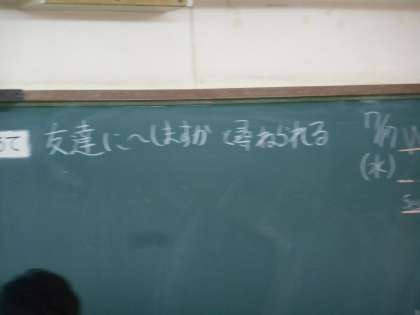 友達に〜しますか と尋ねられる
(水)